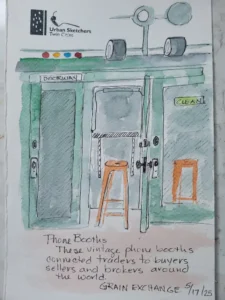 Urban Sketchers
Twin Cities
DOORWAY
CLEAN
Phone Booths
These vintage phone booths
connected traders to buyers
sellers and brokers around
the world.
GRAIN EXCHANGE 5/17/25